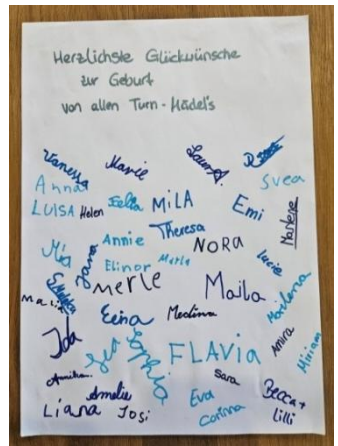 Herzlichste Glückwünsche
zur Geburt
von allen Turn-Mädel's
Vanessa Marie Laura
Anna Svea
LUISA Helen Felia MiLA Emi Marlene
Theresa
Mia Jana Annie NORA
Elinor Merla Lucie
Merle Maila Marlena
Malin
Eeina Medina
Ida Lea Sophia FLAVIA Amira Miriam
Annika Sara
Amelie Eva Becca +
Liana Josi Corinna Lilli